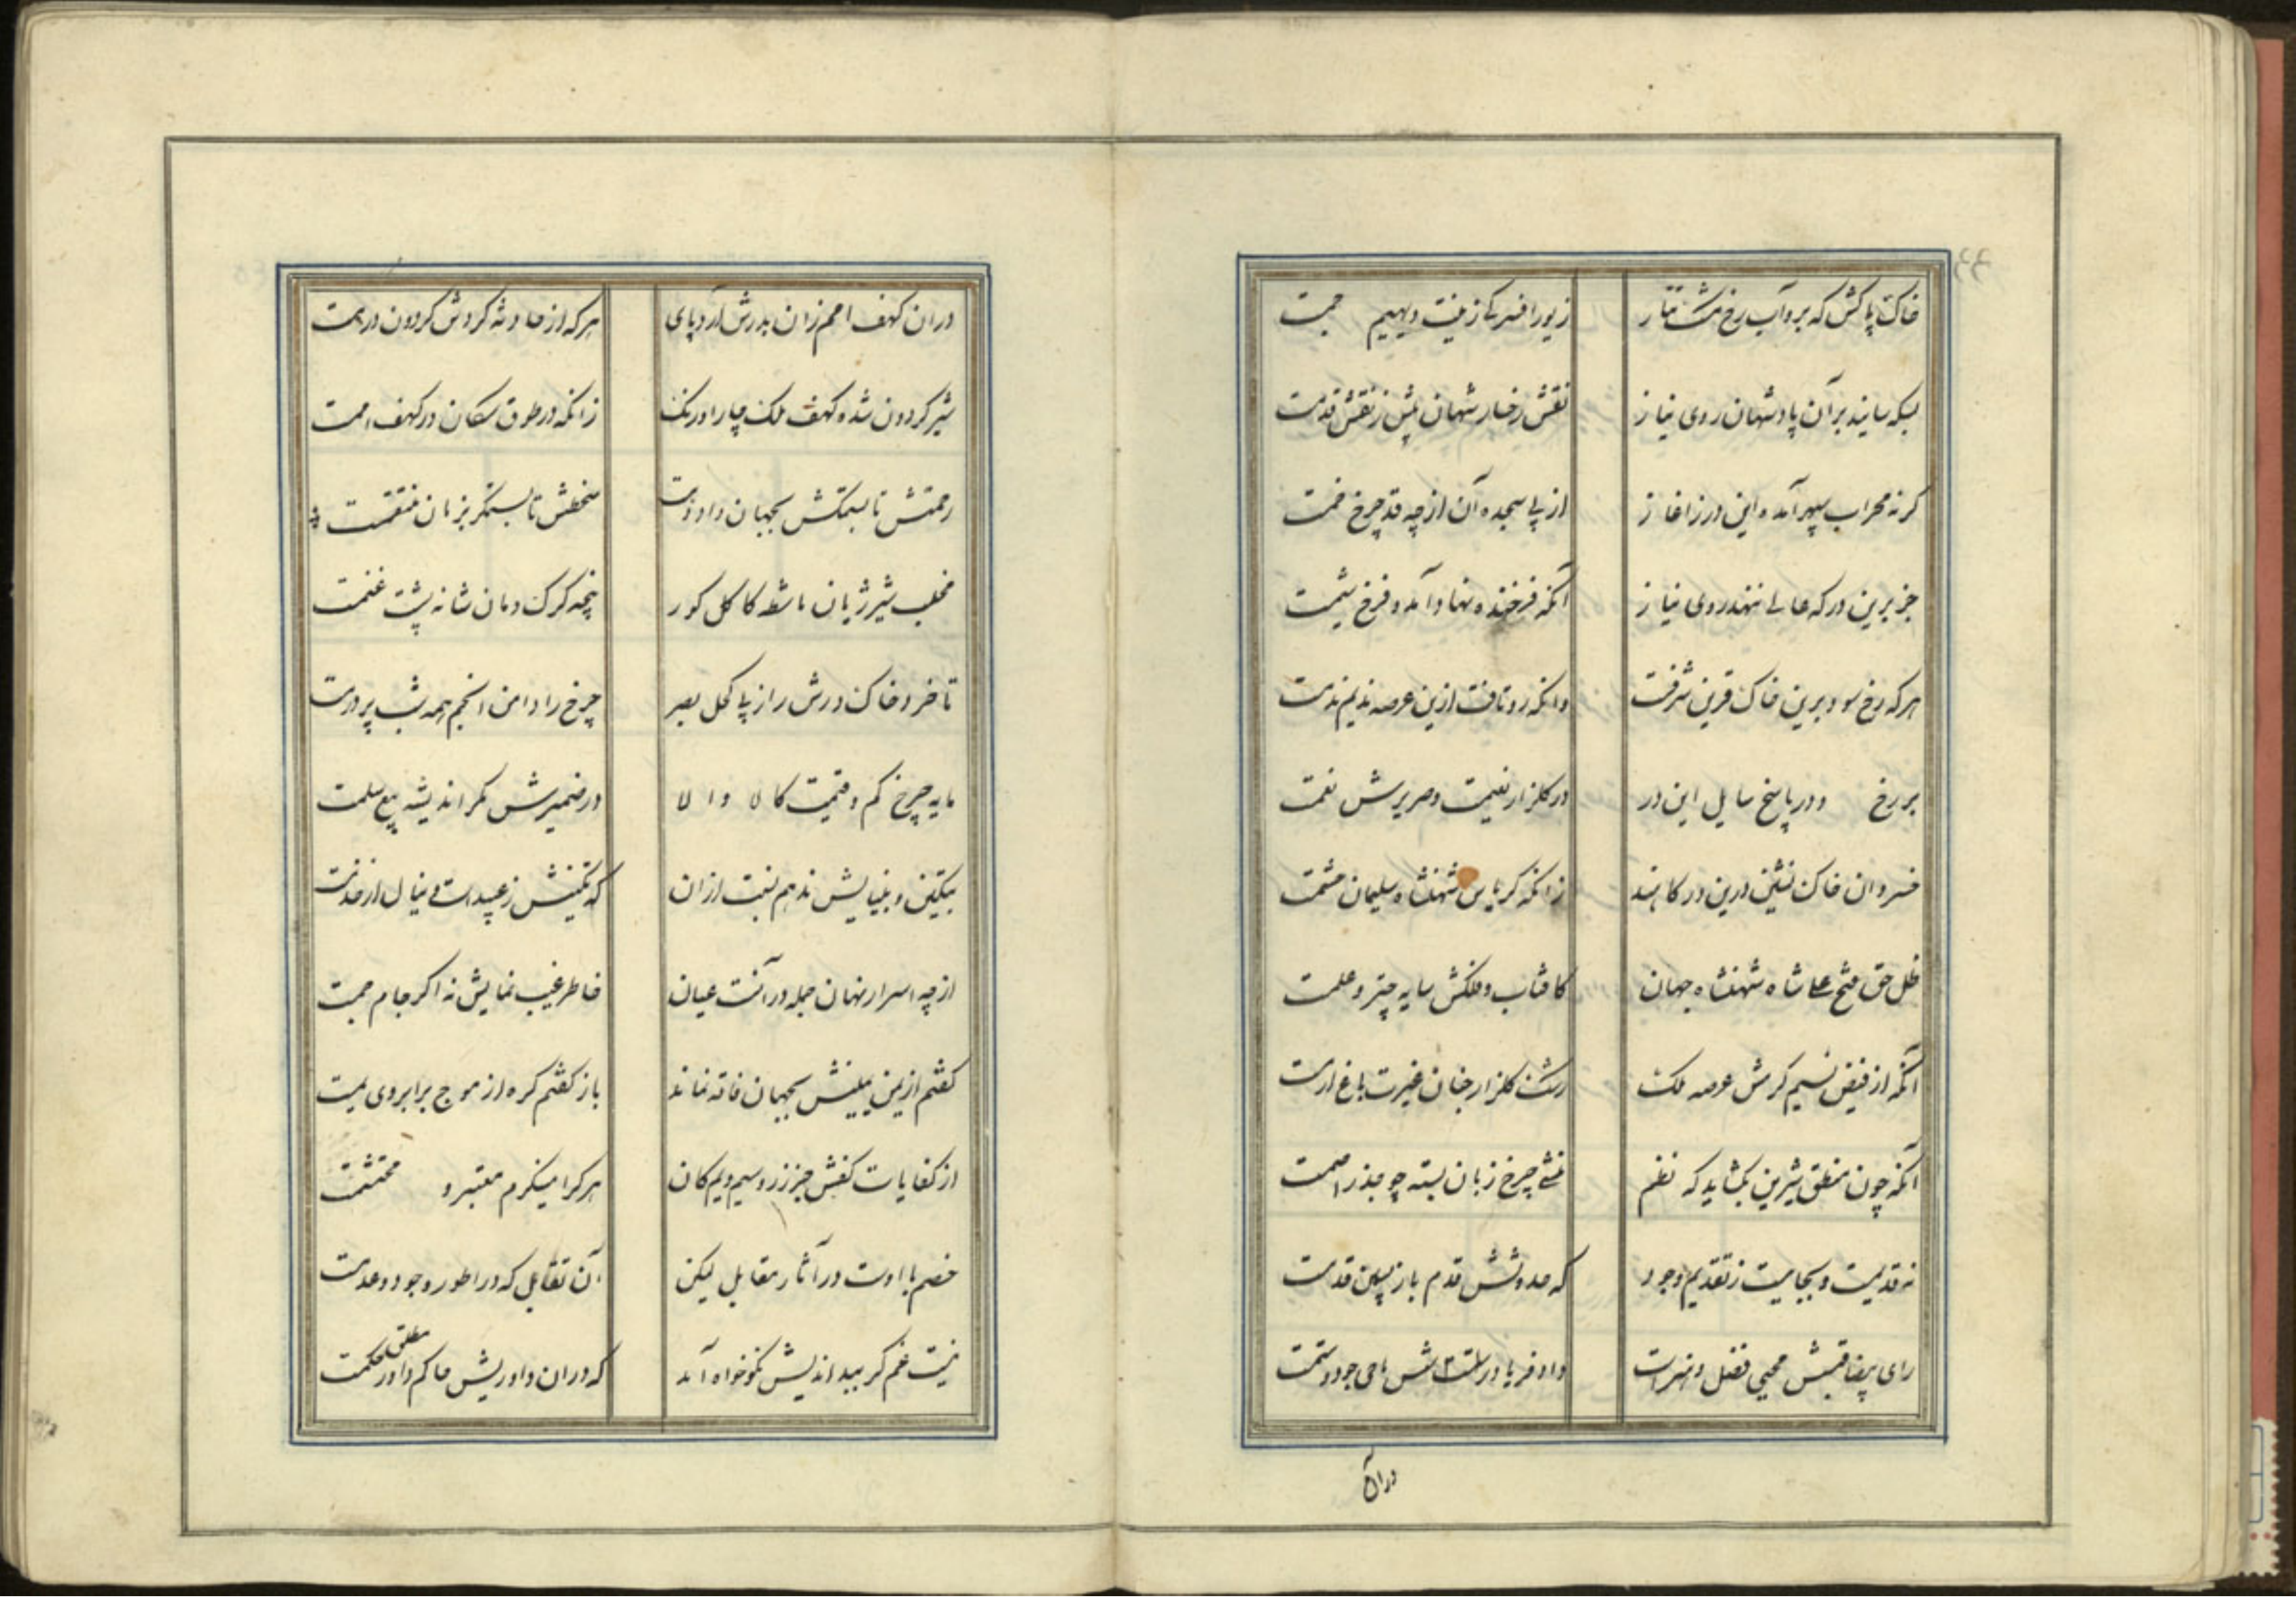 خاک پاکش که برد آب رخ مشک تتار زیور افسر کی زینت دیهیم جمست
بسکه سایند بر آن پادشهان روی نیاز نقش رخسار شهان پیش ز نقش قدمست
گر نه محراب سپهر آمده این در ز اغاز از پی سجده آن از چه قد چرخ خمست
جز برین درگه عالی ننهد روی نیاز آنکه فرخنده نهاد آمد و فرخ شیمست
هر که رخ سود برین خاک قرین شرفست وانکه رو تافت ازین عرصه ندیم ندمست
بر رخ و در پاسخ سایل این در در گلزار نعیمست و صریرش نعمست
خسروان خاک نشین درین درگاهند زانکه کریاس شهنشاه سلیمان حشمست
ظل حق فتح علی شاه شهنشاه جهان کافتاب و فلکش سایه چتر و علمست
آنکه از فیض نسیم کرمش عرصه ملک رشک گلزار جنان غیرت باغ ارمست
آنکه چون منطق شیرین بگشاید گه نظم منشی چرخ زبان بسته چو جذر اصمست
نه قدیمست و بجاییست ز تقدیم وجود که حدوثش قدم باز پسین قدمست
رای بیضا قبسش محیی فضل و هنرست داد فریادرسش ماحی جور و ستمست
دران
دران کهف امم زان بدرش آرد پای هر که از حادثه گردش گردون دژمست
شیر گردون شده کهف ملک چار اورنگ زانکه در طوق سگان در کهف اممست
رحمتش تا بستمکش بجهان دادرست سخطش تا بستمگر بزمان منتقمست
مخلب شیر ژیان ماشطه کاکل گور پنجه گرگ دمان شانه پشت غنمست
تا خرد خاک درش را از پی کحل بصر چرخ را دامن انجم همه شب پر درمست
مایه چرخ کم و قیمت کالا والا در ضمیرش مگر اندیشه بیع سلمست
بتکین و بینالیش ندهم نسبت ازان که تکینش ز عبیدست و ینال از خدمست
از چه اسرار نهان جمله در آنست عیان خاطر غیب نمایش نه اگر جام جمست
گفتم از یمن یمینش بجهان فاقه نماند باز گفتم گره از موج بر ابروی یمست
از کفایات کفش جز زر و سیم و یم و کان هر کرا مینگرم معتبر و محتشمست
خصم با اوست در آثار مقابل لیکن آن تقابل که در اطوار وجود و عدمست
نیست غم گر بداندیش نکوخواه آمد که دران داوریش حاکم مطلق داور حکمست